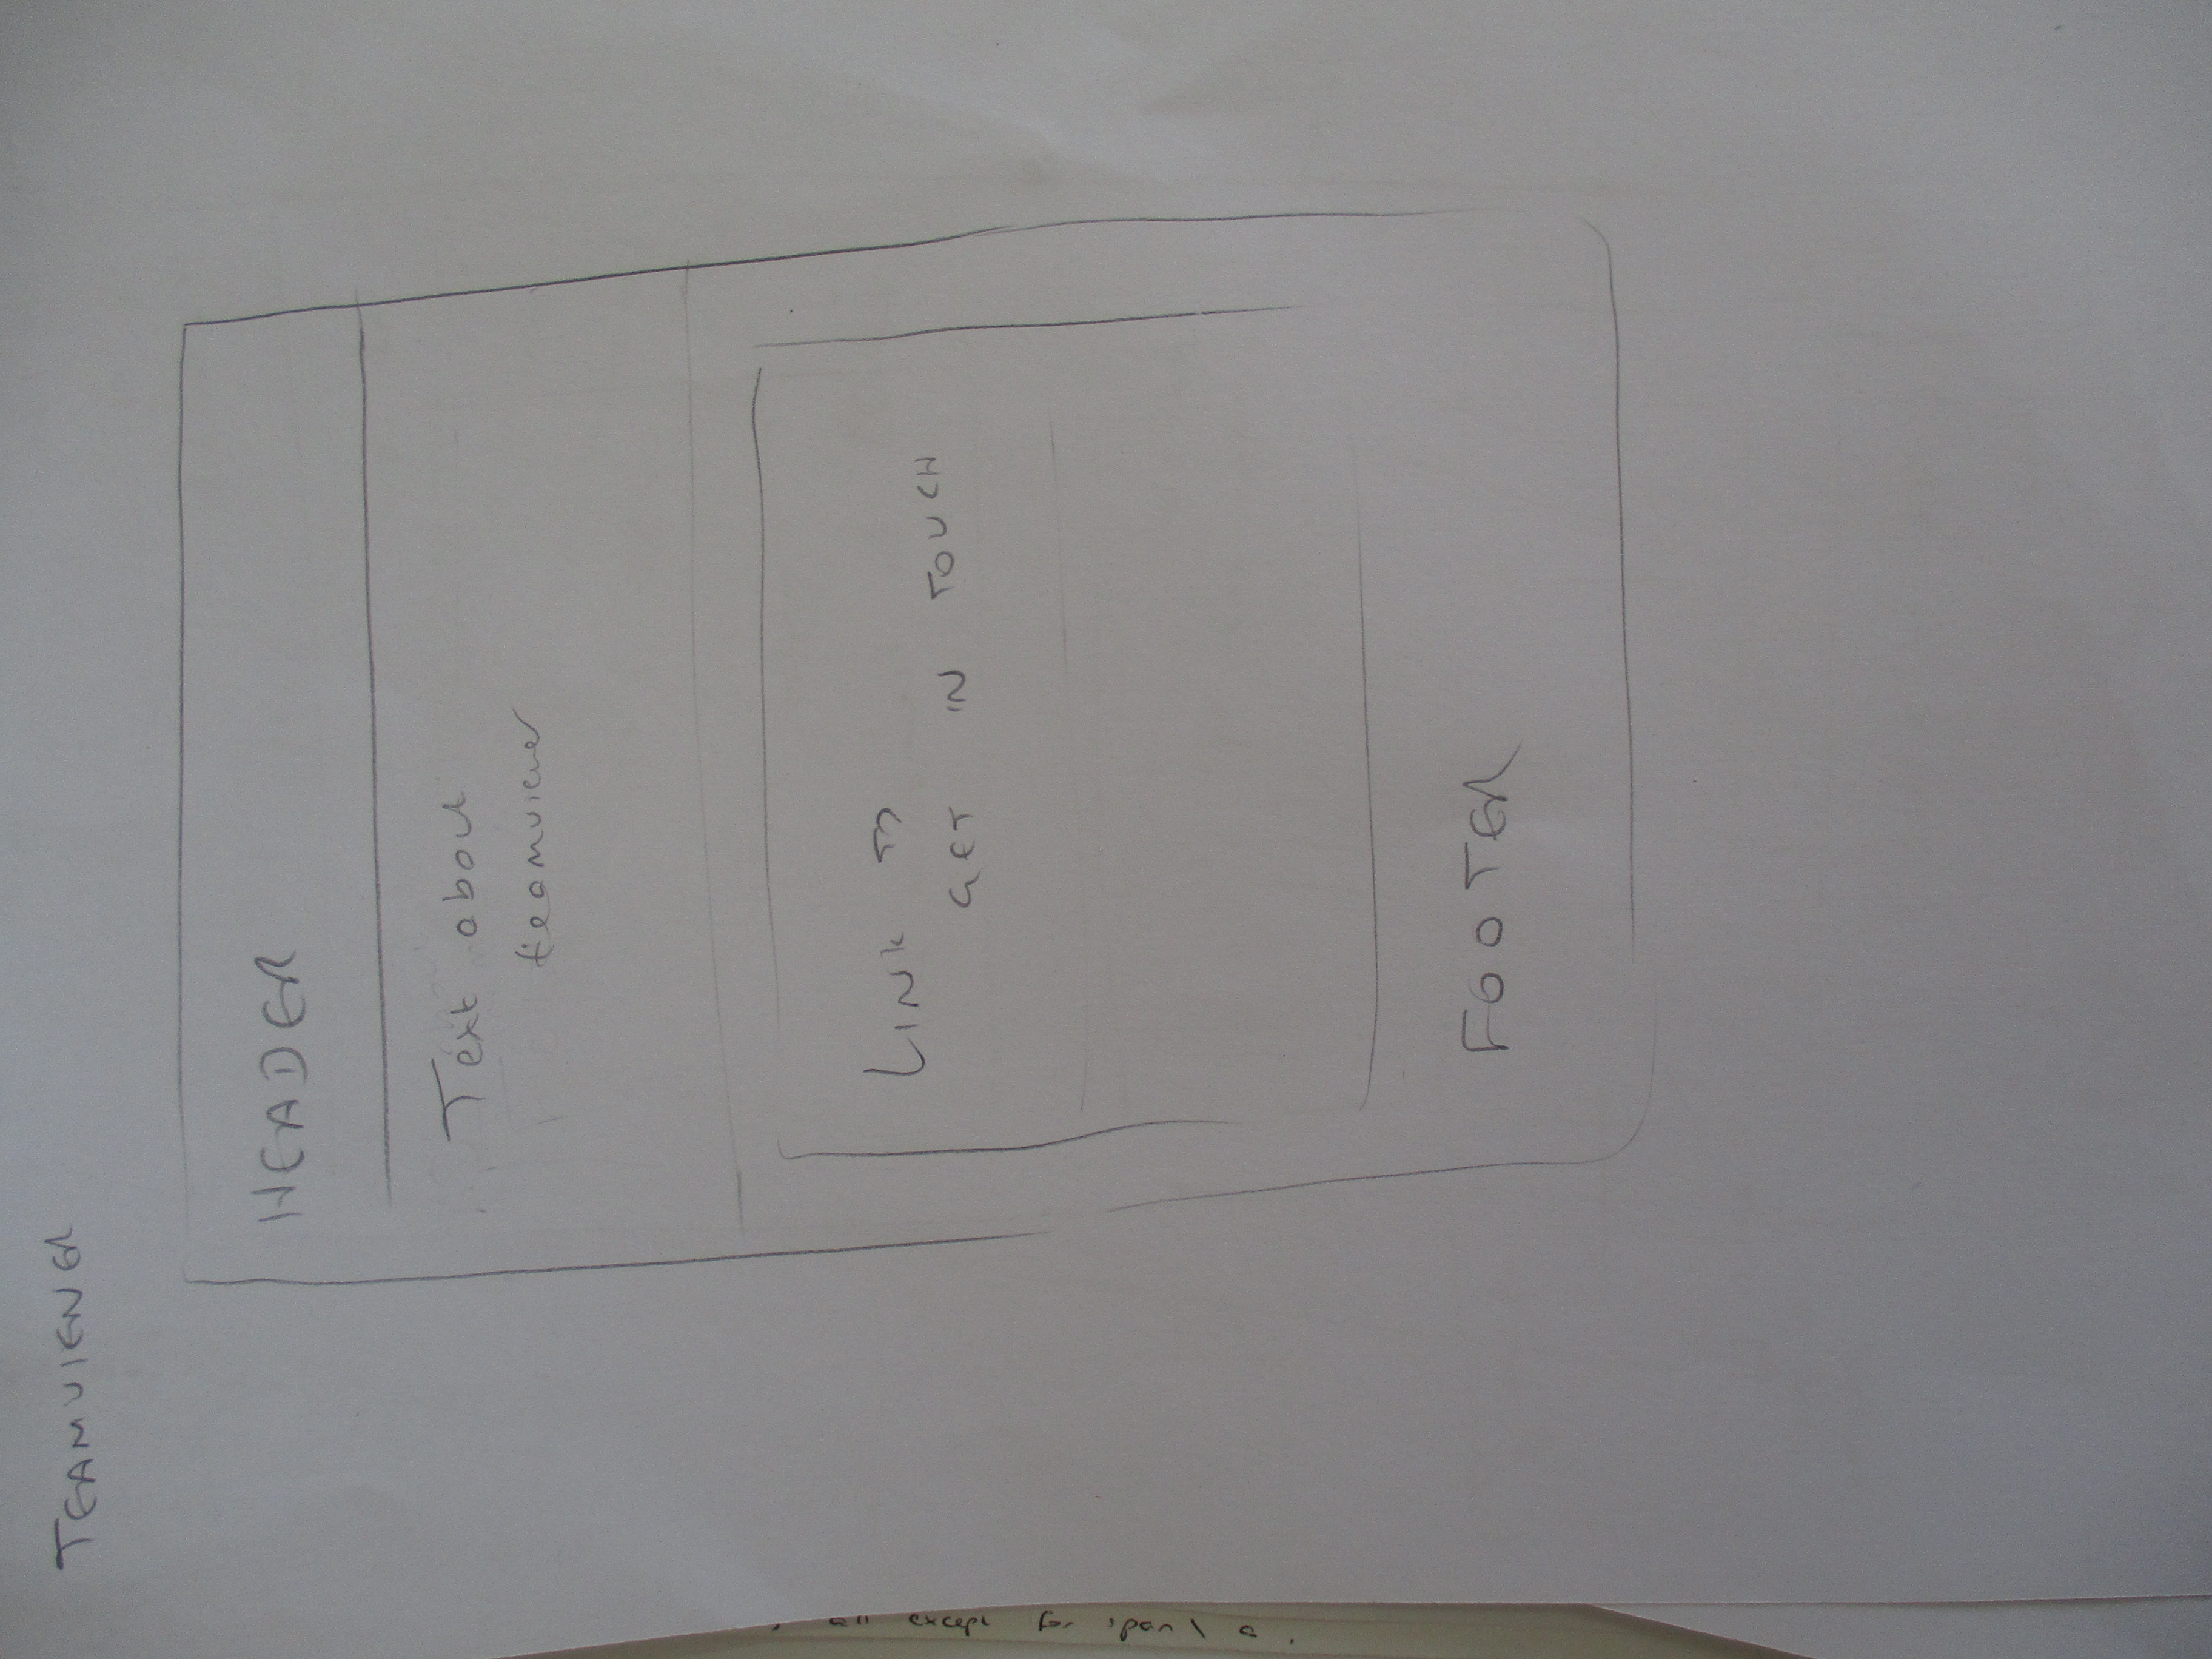 TEAMVIEWER
HEADER
Text about
teamviewer
LINK TO
GET IN TOUCH
FOOTER
all except for span \ a.